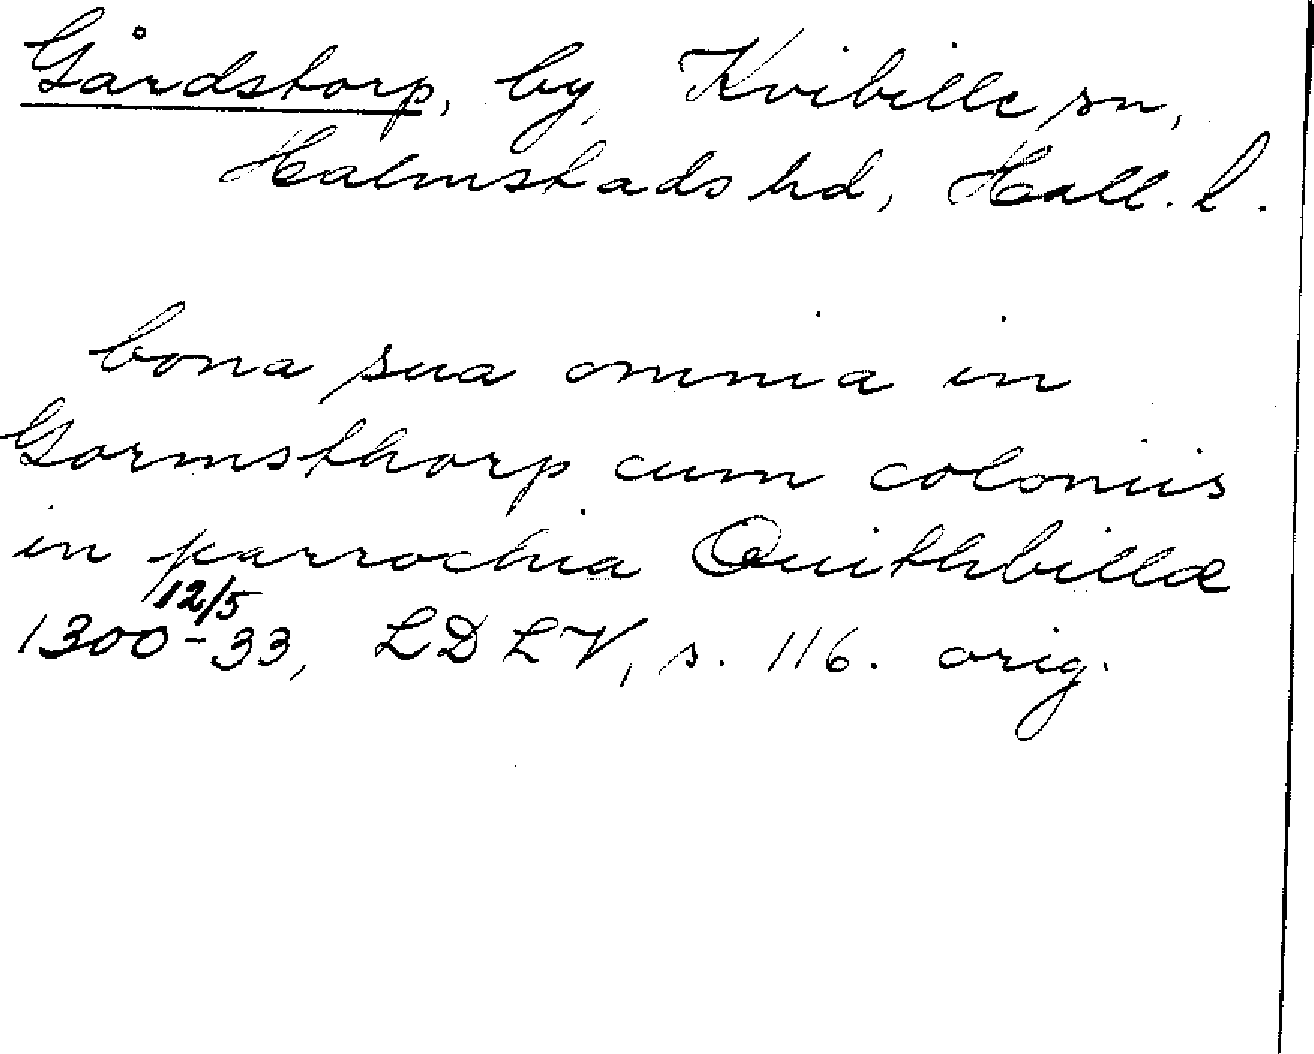 Gårdstorp, by, Kvibille sn,
Halmstads hd, Hall. l.
bona sua omnia in
Gormsthorp cum coloniis
in parrochia Quithbillæ
12/5
1300-33, LDLV, s. 116. orig.